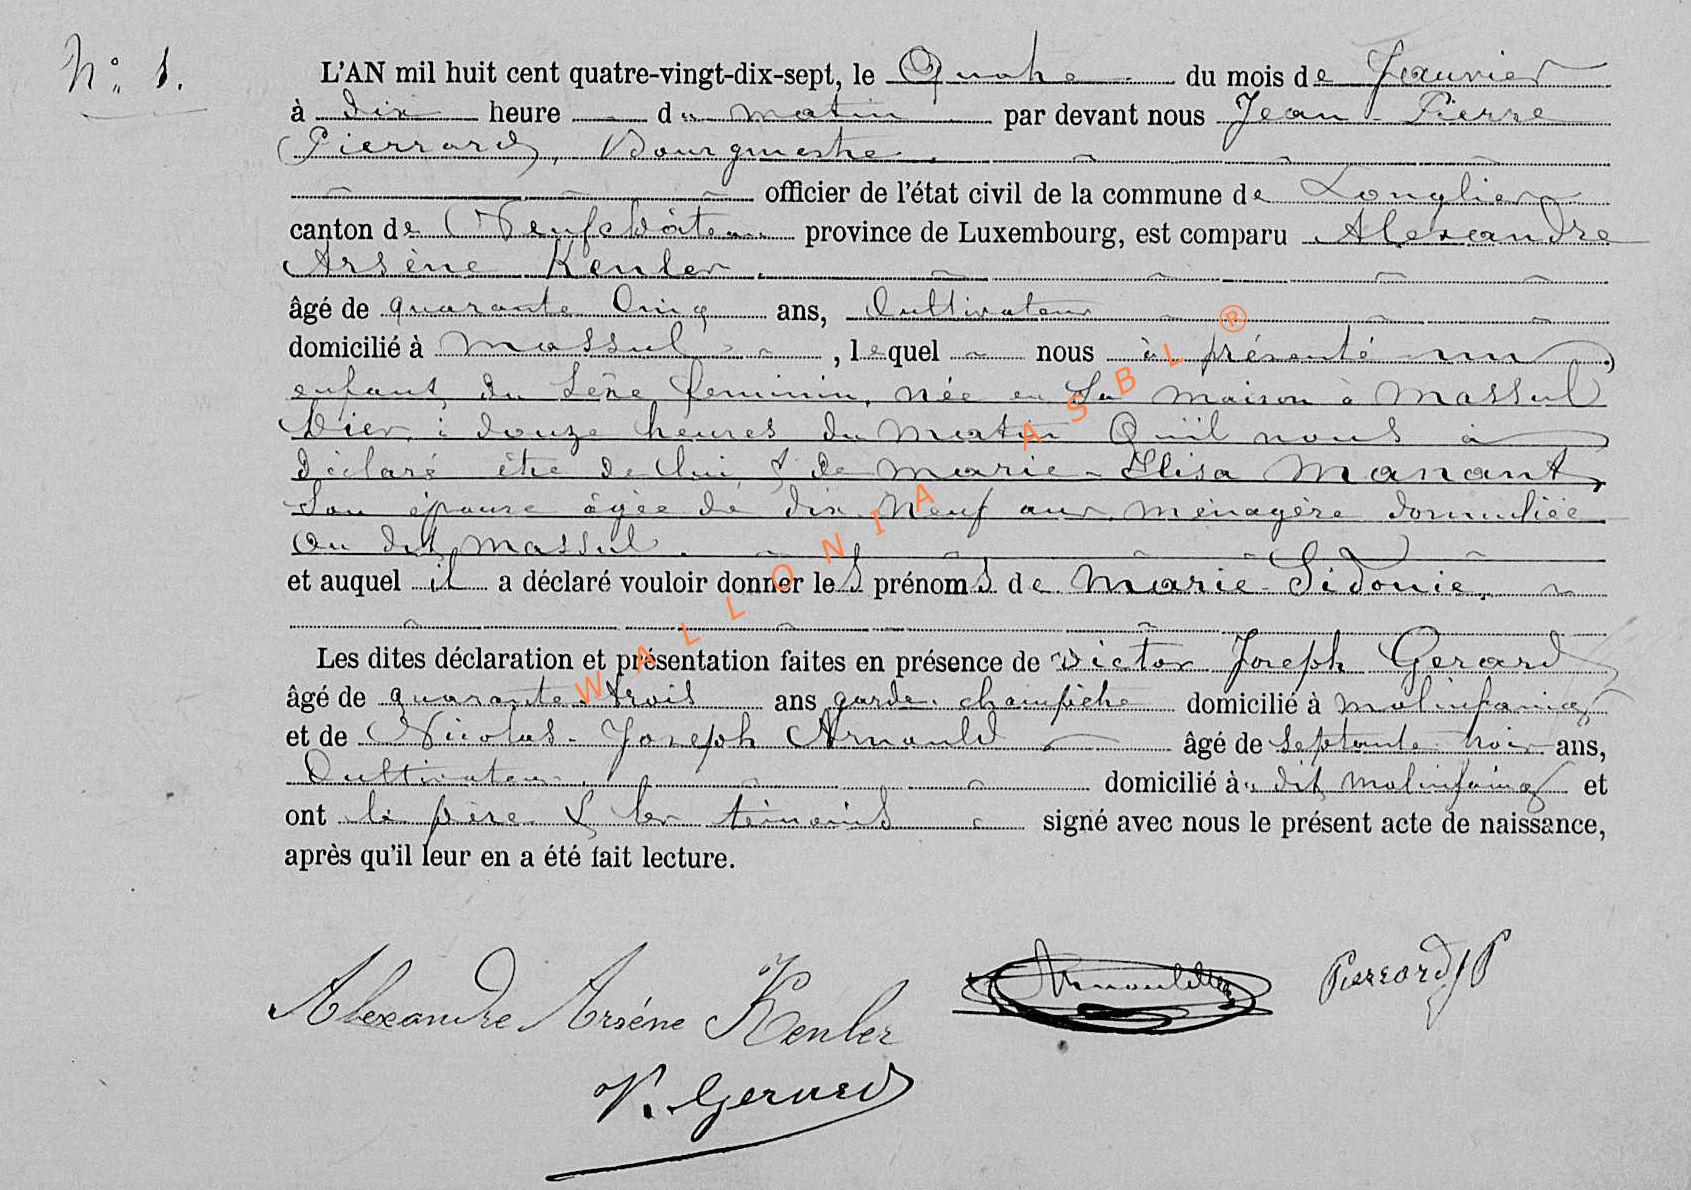 N° 1.
L'AN mil huit cent quatre-vingt-dix-sept, le Quatre du mois de Janvier
à dix heure du matin par devant nous Jean-Pierre
Pierrard, Bourgmestre
officier de l'état civil de la commune de Longlier
canton de Neufchâteau province de Luxembourg, est comparu Alexandre
Arsène Kenler
âgé de quarante Cinq ans, Cultivateur
domicilié à Massul, lequel nous à présenté un
enfant du Sexe feminin, née en sa maison à Massul
hier à douze heures du Matin Qu'il nous a
déclaré être de lui & de Marie-Elisa Manant,
Son épouse âgée de dix Neuf ans, ménagère domiciliée
au dit Massul.
et auquel il a déclaré vouloir donner les prénoms de Marie-Sidonie.
Les dites déclaration et présentation faites en présence de Victor Joseph Gerard
âgé de quarante trois ans garde-champêtre domicilié à Molinfaing
et de Nicolas-Joseph Arnould âgé de septante trois ans,
Cultivateur, domicilié à dit Molinfaing et
ont le père & les témoins signé avec nous le présent acte de naissance,
après qu'il leur en a été fait lecture.
Alexandre Arsène Kenler
Pierrard JP
V. Gerard
WALLONIA ASBL ®